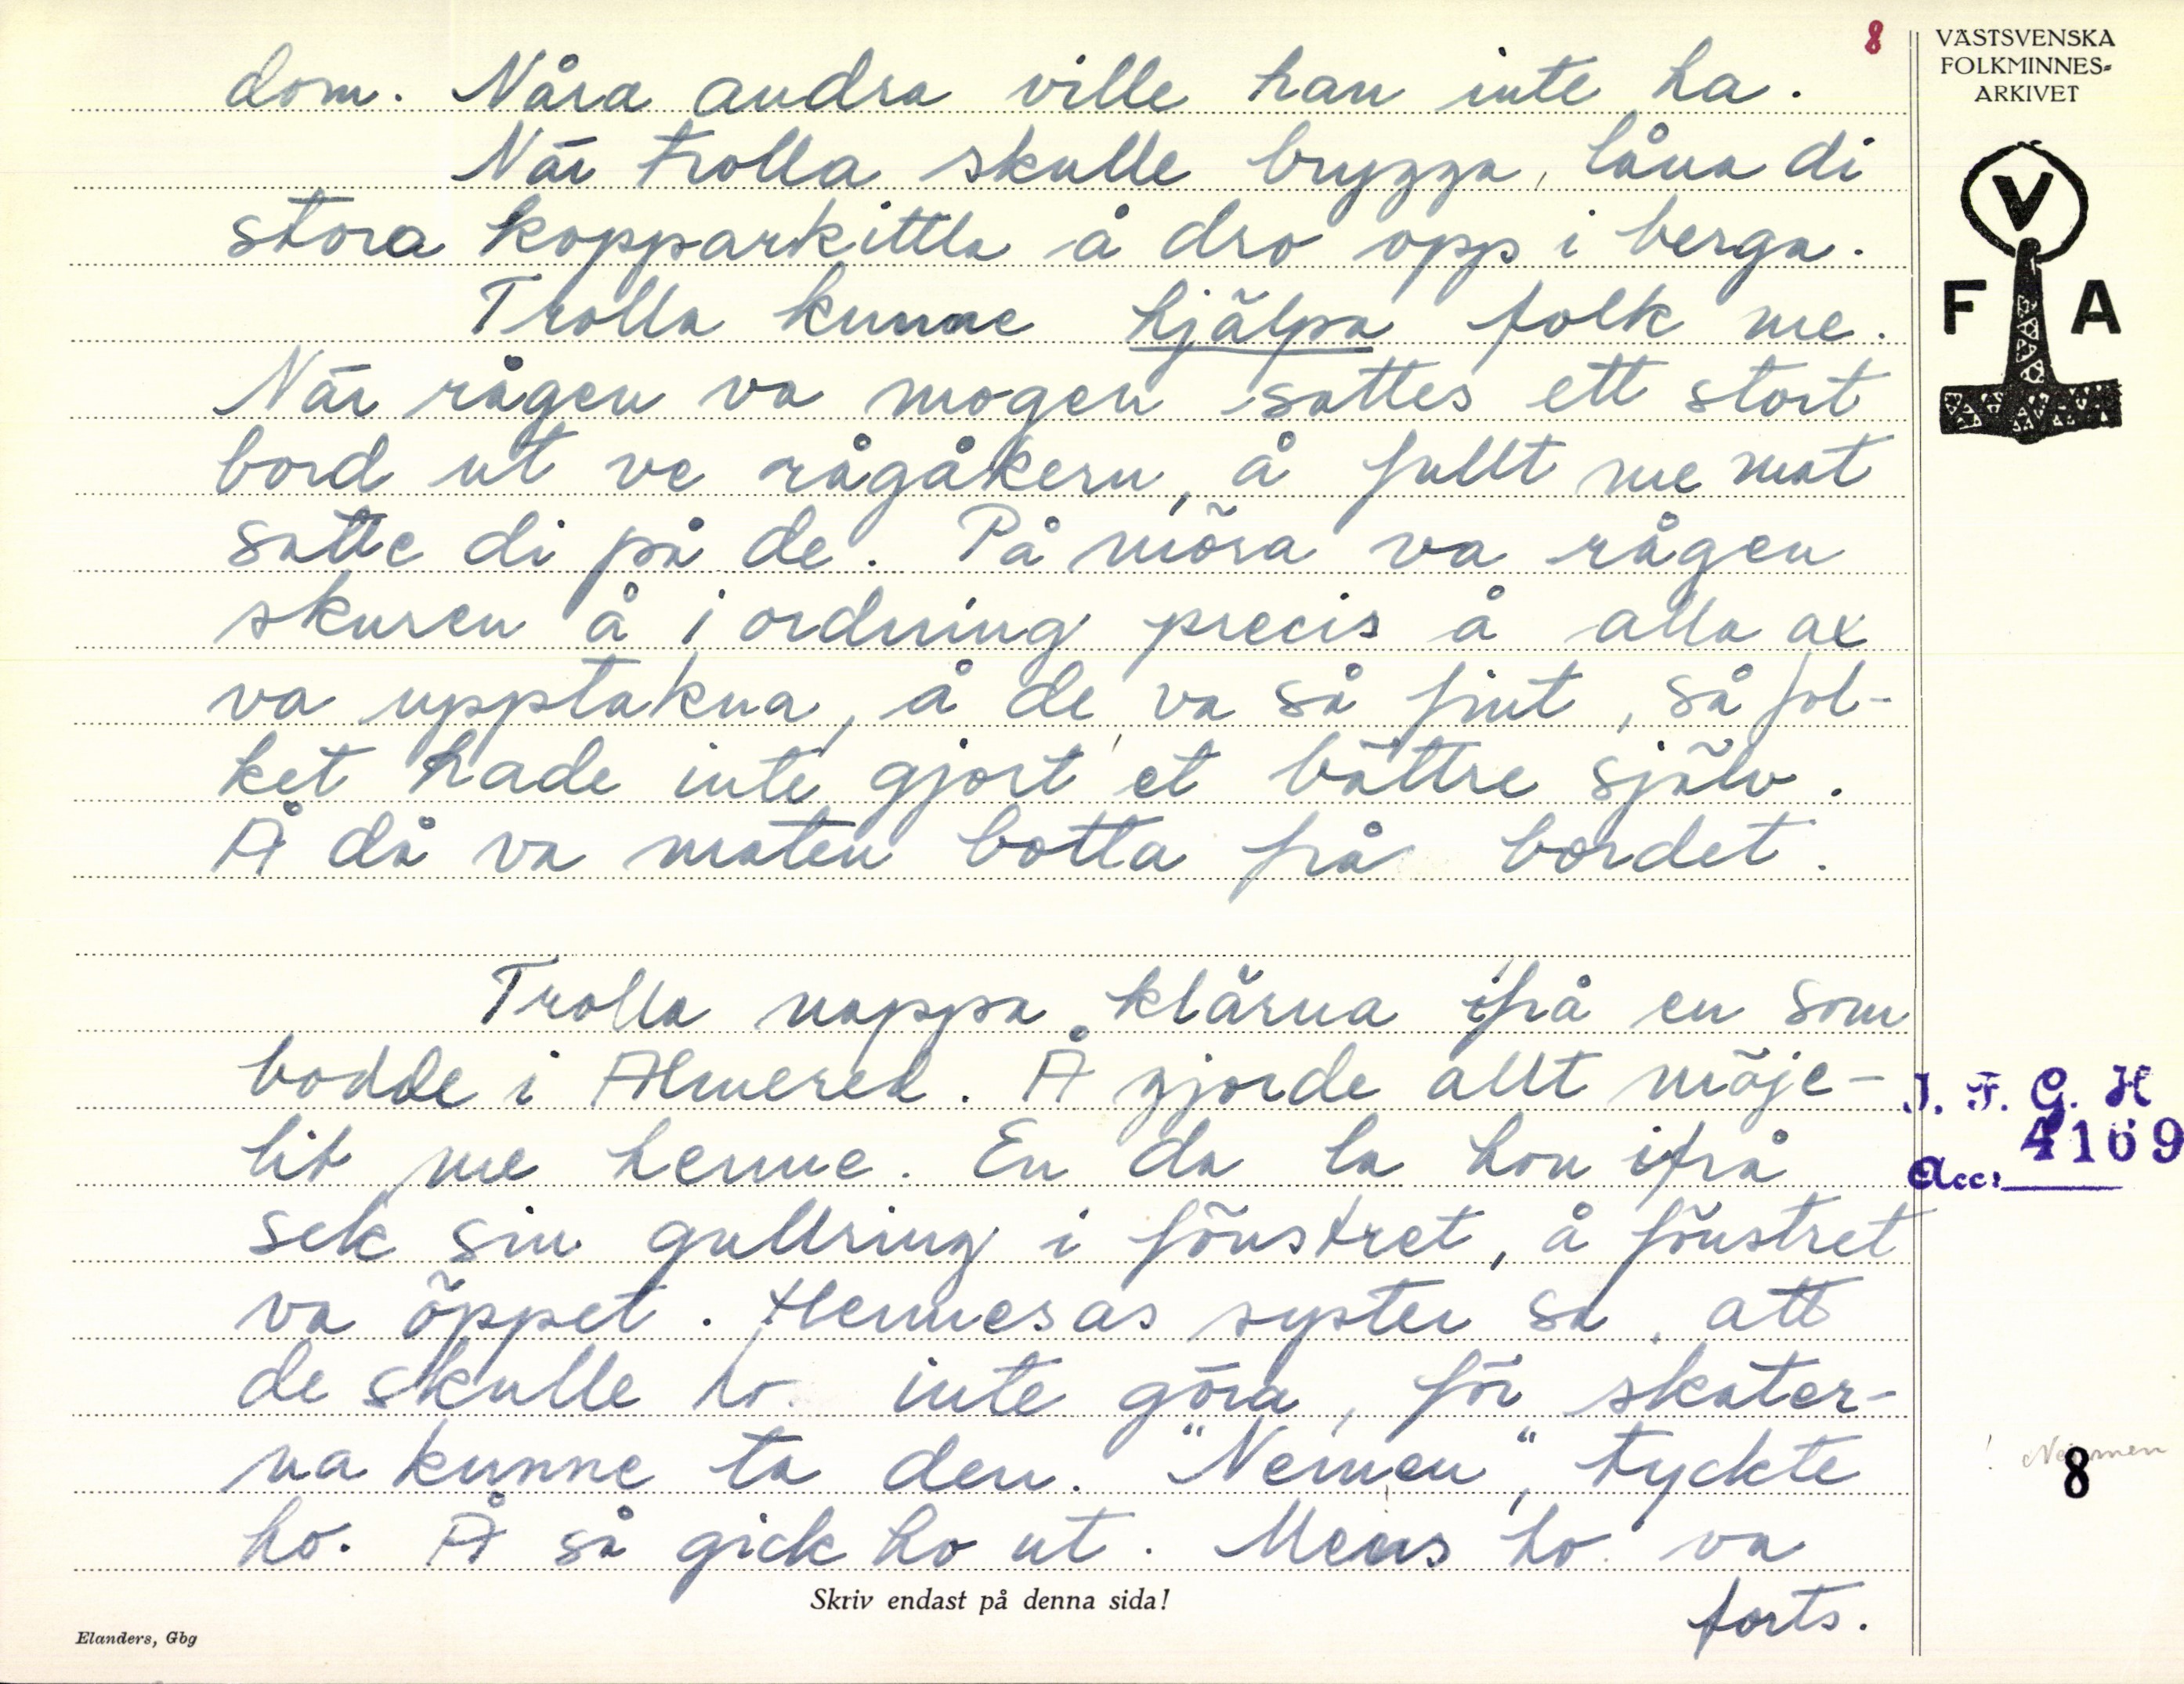 8
VÄSTSVENSKA
FOLKMINNES-
ARKIVET
V
F A
dom. Nåra andra ville han inte ha.
När trolla skulle brygga, låna di
stora kopparkittla å dro opp i berga.
Trolla kunne hjälpa folk me.
När rågen va mogen sattes ett stort
bord ut ve rågåkern, å fullt me mat
satte di på de. På möra va rågen
skuren å i ordning precis å alla ax
va upptakna, å de va så fint, så fol-
ket hade inte gjort et bättre själv.
Å då va maten botta frå bordet.
Trolla nappa klärna ifrå en som
bodde i Almered. Å gjorde allt möje-
lit me henne. En da la hon ifrå
sek sin gullring i fönstret, å fönstret
va öppet. Hennesas syster sa, att
de skulle ho inte göra, för skater-
na kunne ta den. "Nemen", tyckte
ho. Å så gick ho ut. Mens ho va
forts.
I. F. G. H
4169
Acc:
! Nejmen
8
Skriv endast på denna sida!
Elanders, Gbg